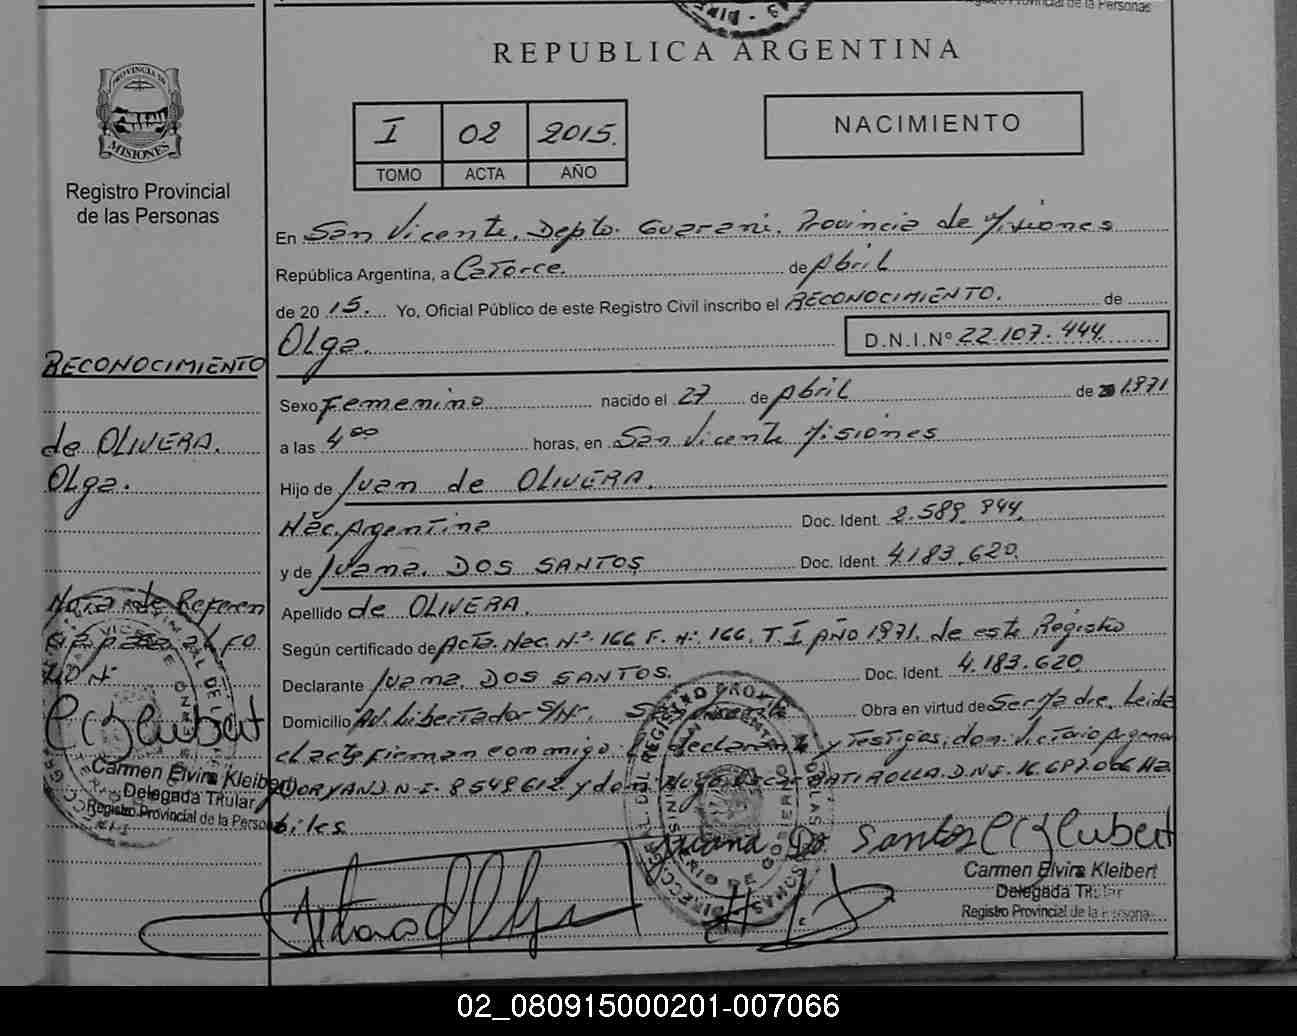 Registro Provincial de las Personas
REPUBLICA ARGENTINA
PROVINCIA DE
MISIONES
Registro Provincial
de las Personas
I 02 2015.
TOMO ACTA AÑO
NACIMIENTO
En San Vicente, Depto. Guarani, Provincia de Misiones
República Argentina, a Catorce. de Abril
de 20 15. Yo, Oficial Público de este Registro Civil inscribo el RECONOCIMIENTO. de
Olga. D.N.I.Nº 22.107.444
RECONOCIMIENTO
Sexo Femenino nacido el 27 de Abril de 1971
a las 4 00 horas, en San Vicente Misiones
de OLIVERA.
Olga.
Hijo de Juan de OLIVERA.
Nac. Argentina Doc. Ident. 2.589.944
y de Juana. DOS SANTOS Doc. Ident. 4183.620
Apellido de OLIVERA.
Nota de Referen
cia al Fo
Según certificado de Acta. Nac. Nº. 166 F. Nº. 166. T. I AÑO 1971. de este Registro
Declarante Juana. DOS SANTOS. Doc. Ident. 4.183.620
Domicilio Av. Libertador S/Nº. Obra en virtud de Ser Madre. Leida
el acta firman conmigo declarante y Testigos, don. Victorio
D.N.I. 8549612 y don Hugo D.N.I. 16.687.066 Ha
biles
C E Kleibert
Carmen Elvira Kleibert
Delegada Titular
Registro Provincial de la Personas
Juana Do Santos C E Kleibert
Carmen Elvira Kleibert
Delegada Titular
Registro Provincial de la Personas
02_080915000201-007066